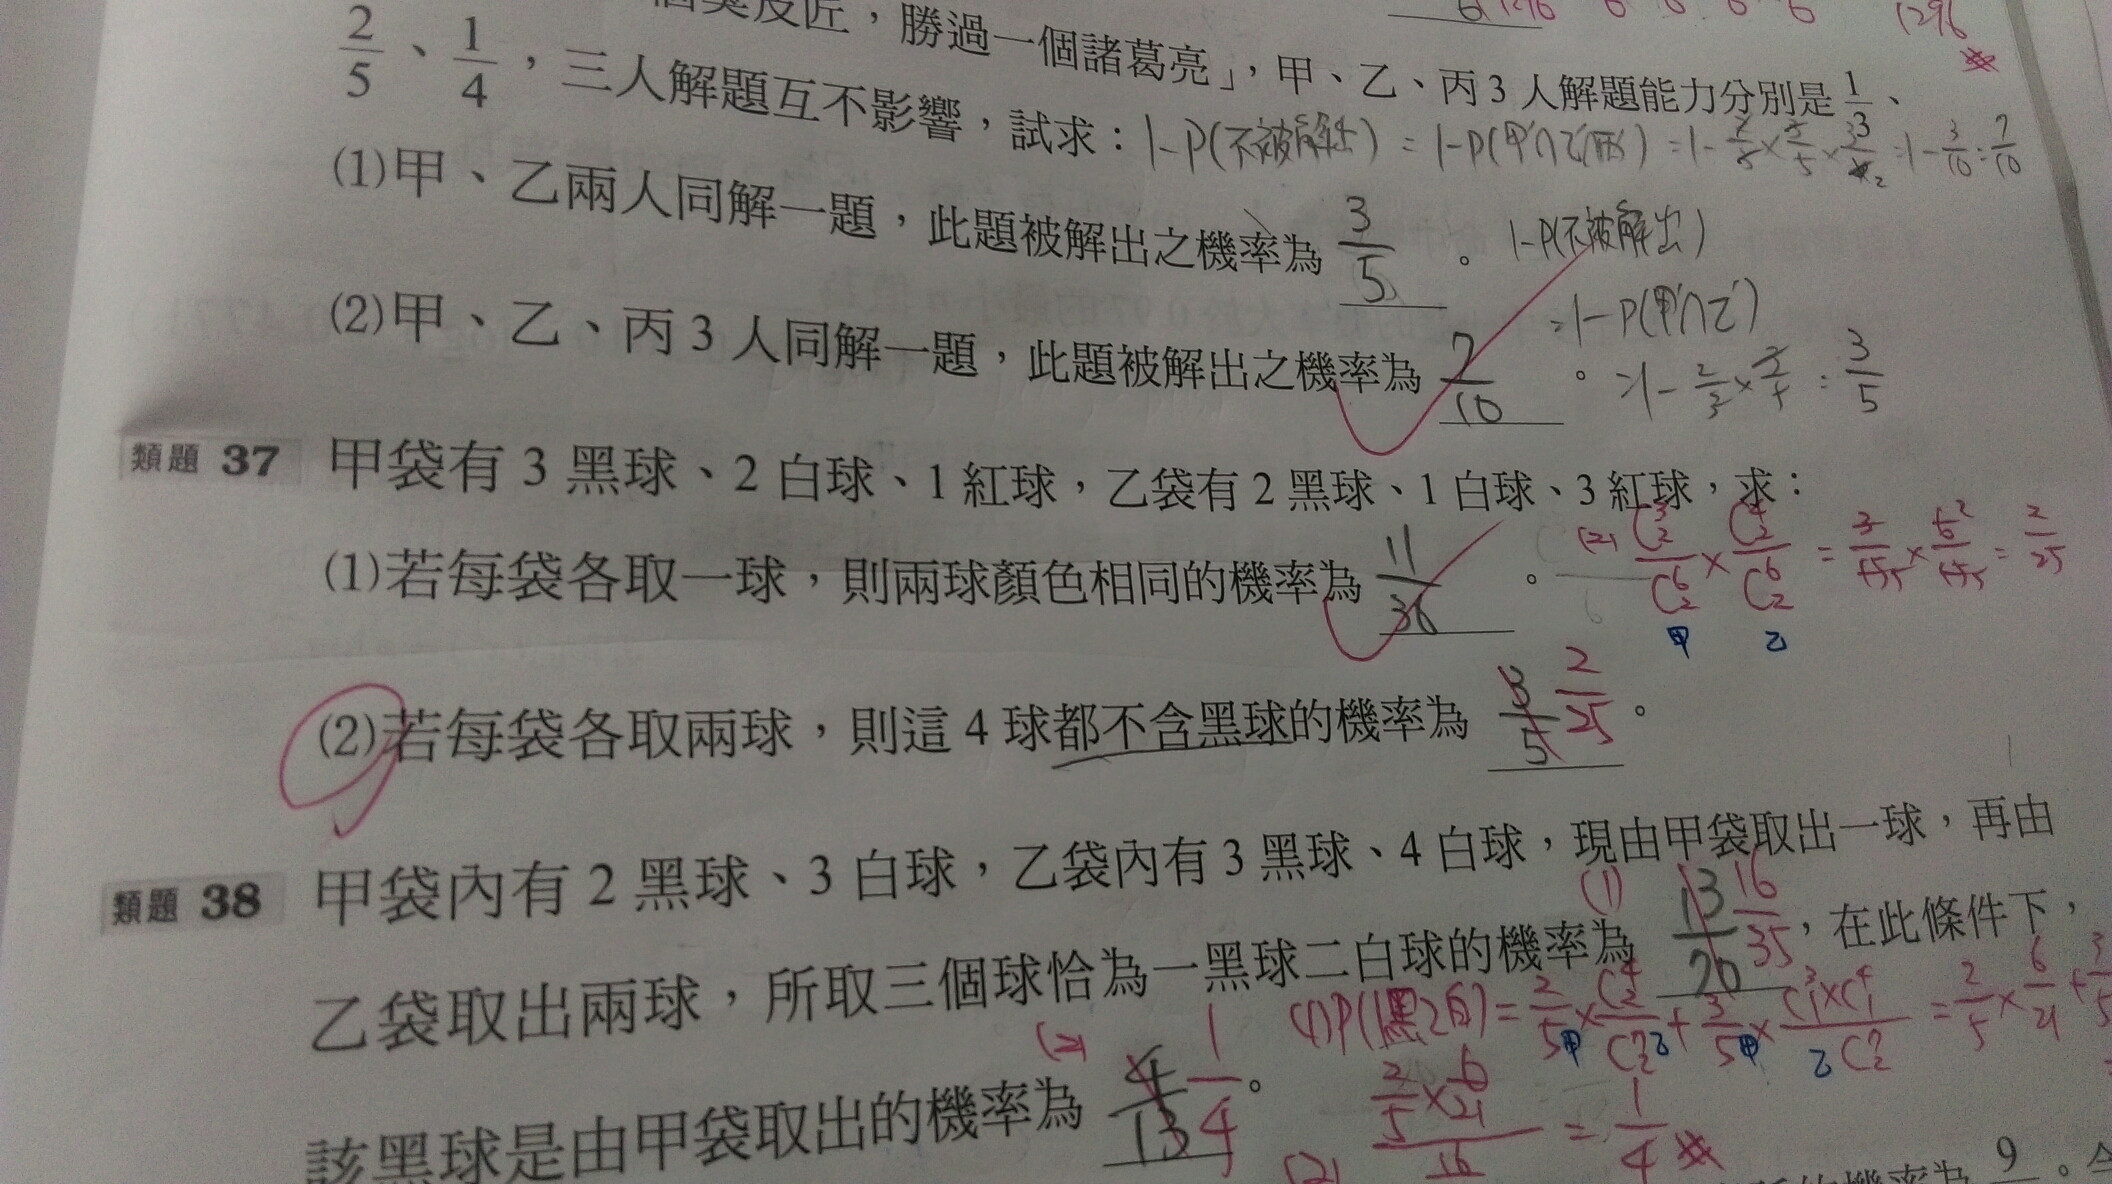 臭皮匠，勝過一個諸葛亮」，甲、乙、丙3人解題能力分別是 1/3、
1296
2/5、1/4，三人解題互不影響，試求：
1-P(不被解出) = 1-P(甲'∩乙'∩丙') = 1- 2/3 × 3/5 × 3/4 = 1- 3/10 = 7/10
(1)甲、乙兩人同解一題，此題被解出之機率為 3/5 。
1-P(不被解出)
= 1-P(甲'∩乙')
(2)甲、乙、丙3人同解一題，此題被解出之機率為 7/10 。
= 1- 2/3 × 3/5 = 3/5
類題 37 甲袋有3黑球、2白球、1紅球，乙袋有2黑球、1白球、3紅球，求：
(1)若每袋各取一球，則兩球顏色相同的機率為 11/36 。
(2) C³₂/C⁶₂ × C⁴₂/C⁶₂ = 3/15 × 6/15 = 2/25
甲 乙
(2)若每袋各取兩球，則這4球都不含黑球的機率為 3/5 2/25 。
類題 38 甲袋內有2黑球、3白球，乙袋內有3黑球、4白球，現由甲袋取出一球，再由
乙袋取出兩球，所取三個球恰為一黑球二白球的機率為 (1) 13/20 16/35，在此條件下，
(1)P(1黑2白) = 2/5 × C⁴₂/C⁷₂ + 3/5 × C³₁×C⁴₁/C⁷₂ = 2/5 × 6/21 + 3/5
甲 乙 甲 乙
該黑球是由甲袋取出的機率為 (2) 4/13 1/4 。
(2) 2/5 × 6/21 / 16 = 1/4
的機率為 9 。